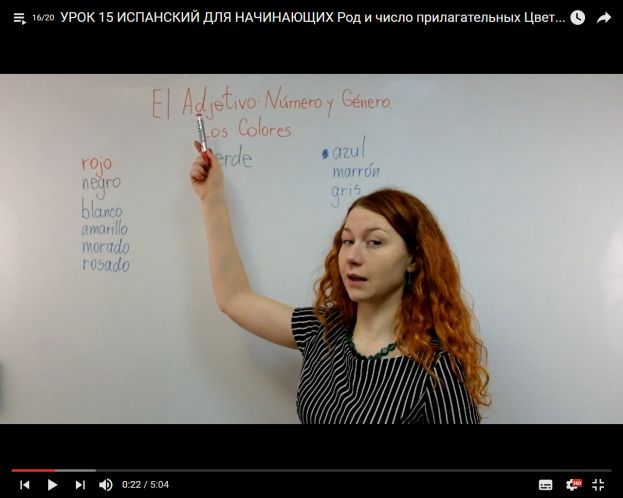 16/20 УРОК 15 ИСПАНСКИЙ ДЛЯ НАЧИНАЮЩИХ Род и число прилагательных Цвет...
El Adjetivo: Número y Género.
Los Colores.
rojo
negro
blanco
amarillo
morado
rosado
verde
azul
marrón
gris
0:22 / 5:04
HD